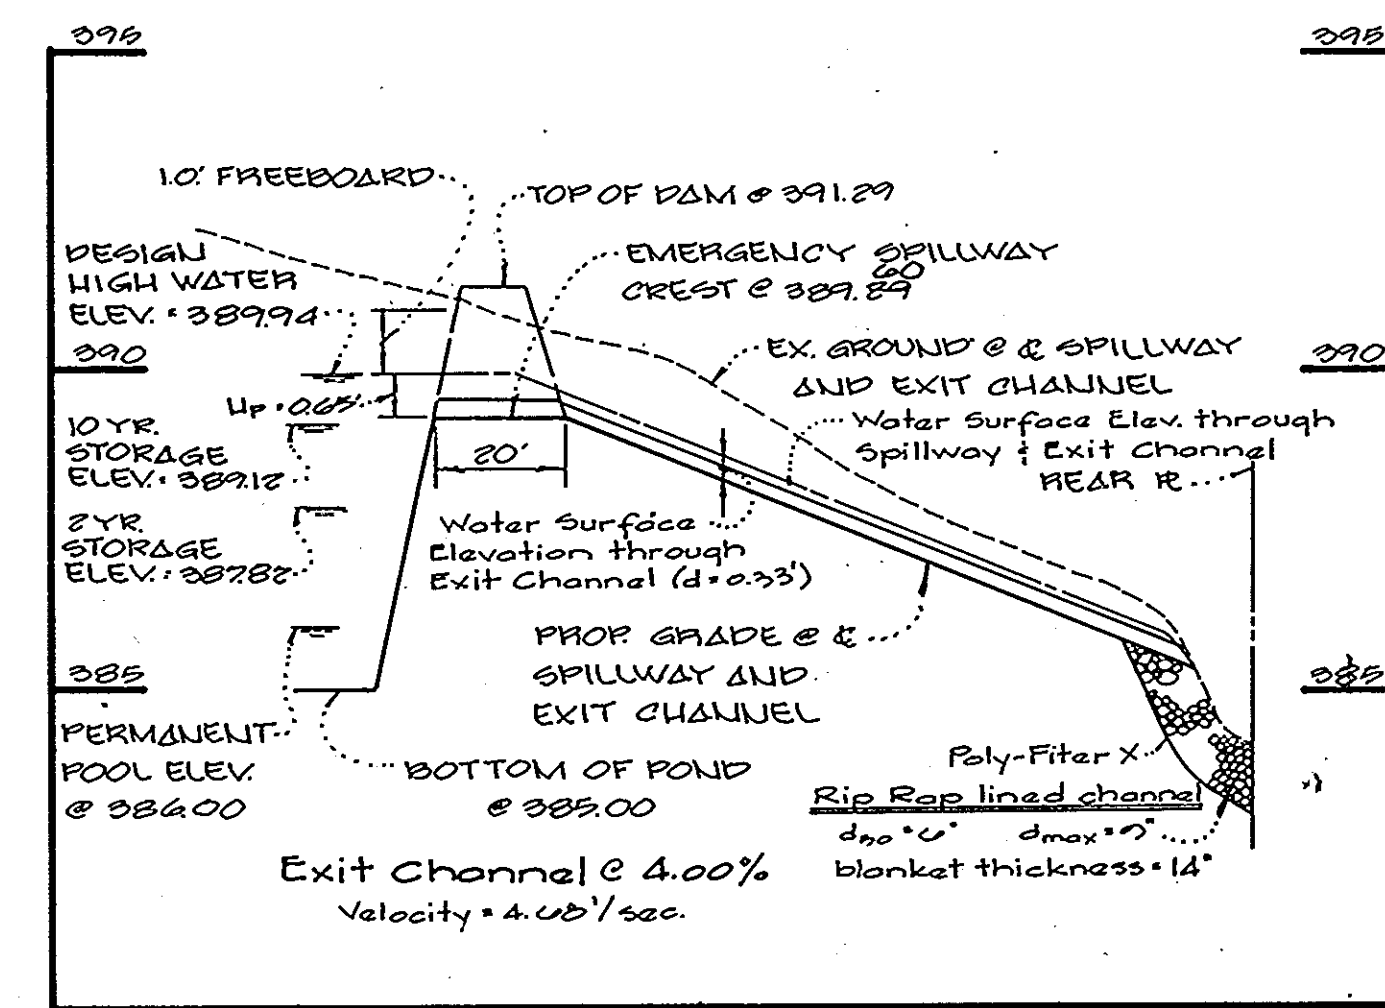 395
395
1.0' FREEBOARD
TOP OF DAM @ 391.29
DESIGN
HIGH WATER
ELEV. = 389.94
EMERGENCY SPILLWAY
60
CREST @ 389.29
390
390
EX. GROUND @ ℄ SPILLWAY
AND EXIT CHANNEL
Hp = 0.65'
10 YR.
STORAGE
ELEV. = 389.12
20'
Water Surface Elev. through
Spillway & Exit Channel
REAR ⅊
2 YR.
STORAGE
ELEV. = 387.82
Water Surface
Elevation through
Exit Channel (d = 0.33')
PROP. GRADE @ ℄
SPILLWAY AND
EXIT CHANNEL
385
385
PERMANENT
POOL ELEV.
@ 386.00
BOTTOM OF POND
@ 385.00
Poly-Fiter X
Rip Rap lined channel
d50 = 6" dmax = 9"
blanket thickness = 14"
Exit Channel @ 4.00%
Velocity = 4.68'/sec.